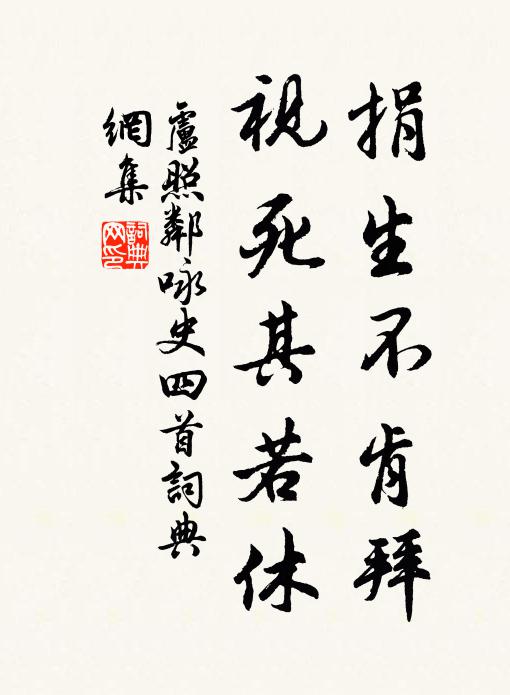 捐生不肯拜
視死其若休
盧照鄰咏史四首詞典
網集
詞典
网印